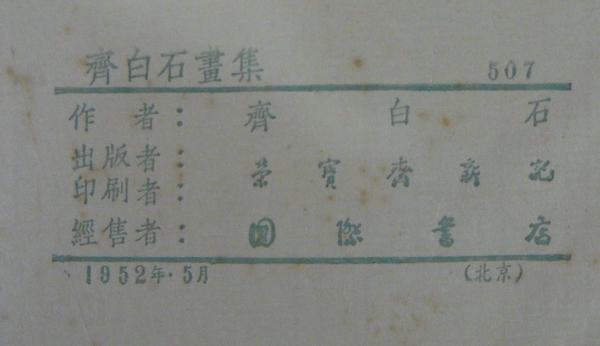 齊白石畫集 507
作者：齊白石
出版者：
印刷者：榮寶齋新記
經售者：國際書店
1952年·5月 (北京)